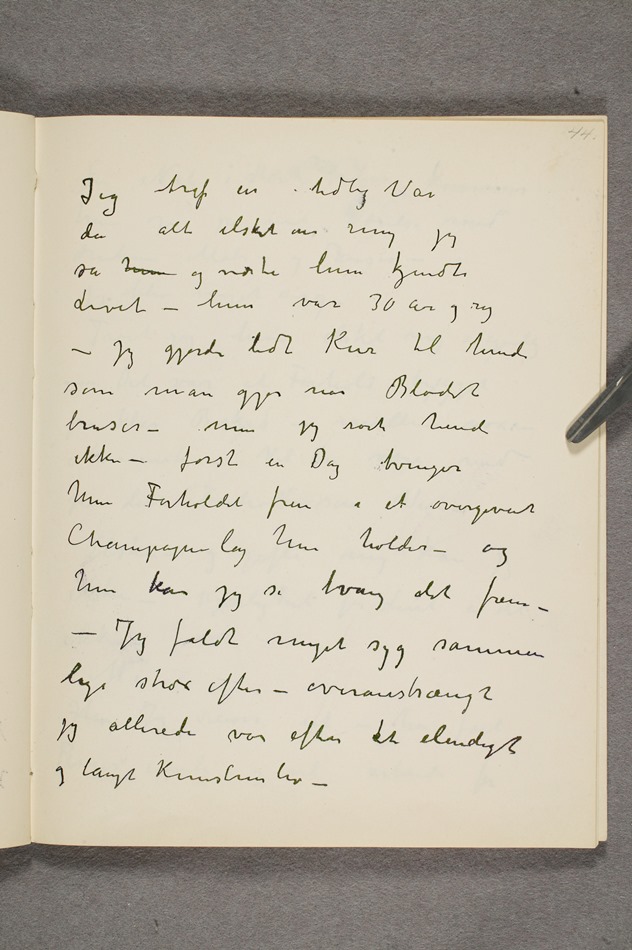 44.
Jeg traf en tidlig Vår
da alt elsket om mig jeg
så hun og vidste hun kjendte
livet – hun var 30 år og rig
– Jeg gjorde lidt Kur til hende
som man gjør når Blodet
bruser – men jeg rørte hende
ikke – først en Dag tvinger
hun Forholdet frem i et overgivent
Champagnelag hun holder – og
hun kan jeg si tvang det frem –
– Jeg faldt meget syg sammen
lige strax efter – overanstrængt
jeg allerede var efter et elendigt
og langt Kunstnerliv –